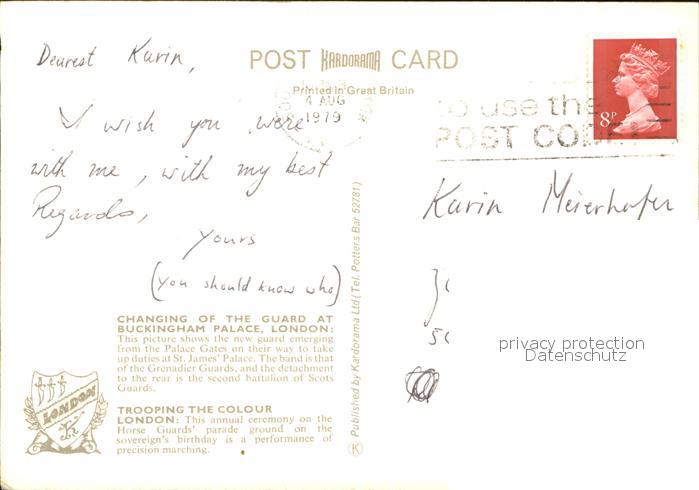 Dearest Karin,
POST KARDORAMA CARD
Printed in Great Britain
4 AUG
1979
to use the
POST CODE
8P
I wish you were
with me, with my best
Regards,
yours
(you should know who)
Karin Meierhofer
privacy protection
Datenschutz
Published by Kardorama Ltd (Tel. Potters Bar 52781)
K
CHANGING OF THE GUARD AT
BUCKINGHAM PALACE, LONDON:
This picture shows the new guard emerging
from the Palace Gates on their way to take
up duties at St. James' Palace. The band is that
of the Grenadier Guards, and the detachment
to the rear is the second battalion of Scots
Guards.
LONDON
K
TROOPING THE COLOUR
LONDON: This annual ceremony on the
Horse Guards' parade ground on the
sovereign's birthday is a performance of
precision marching.